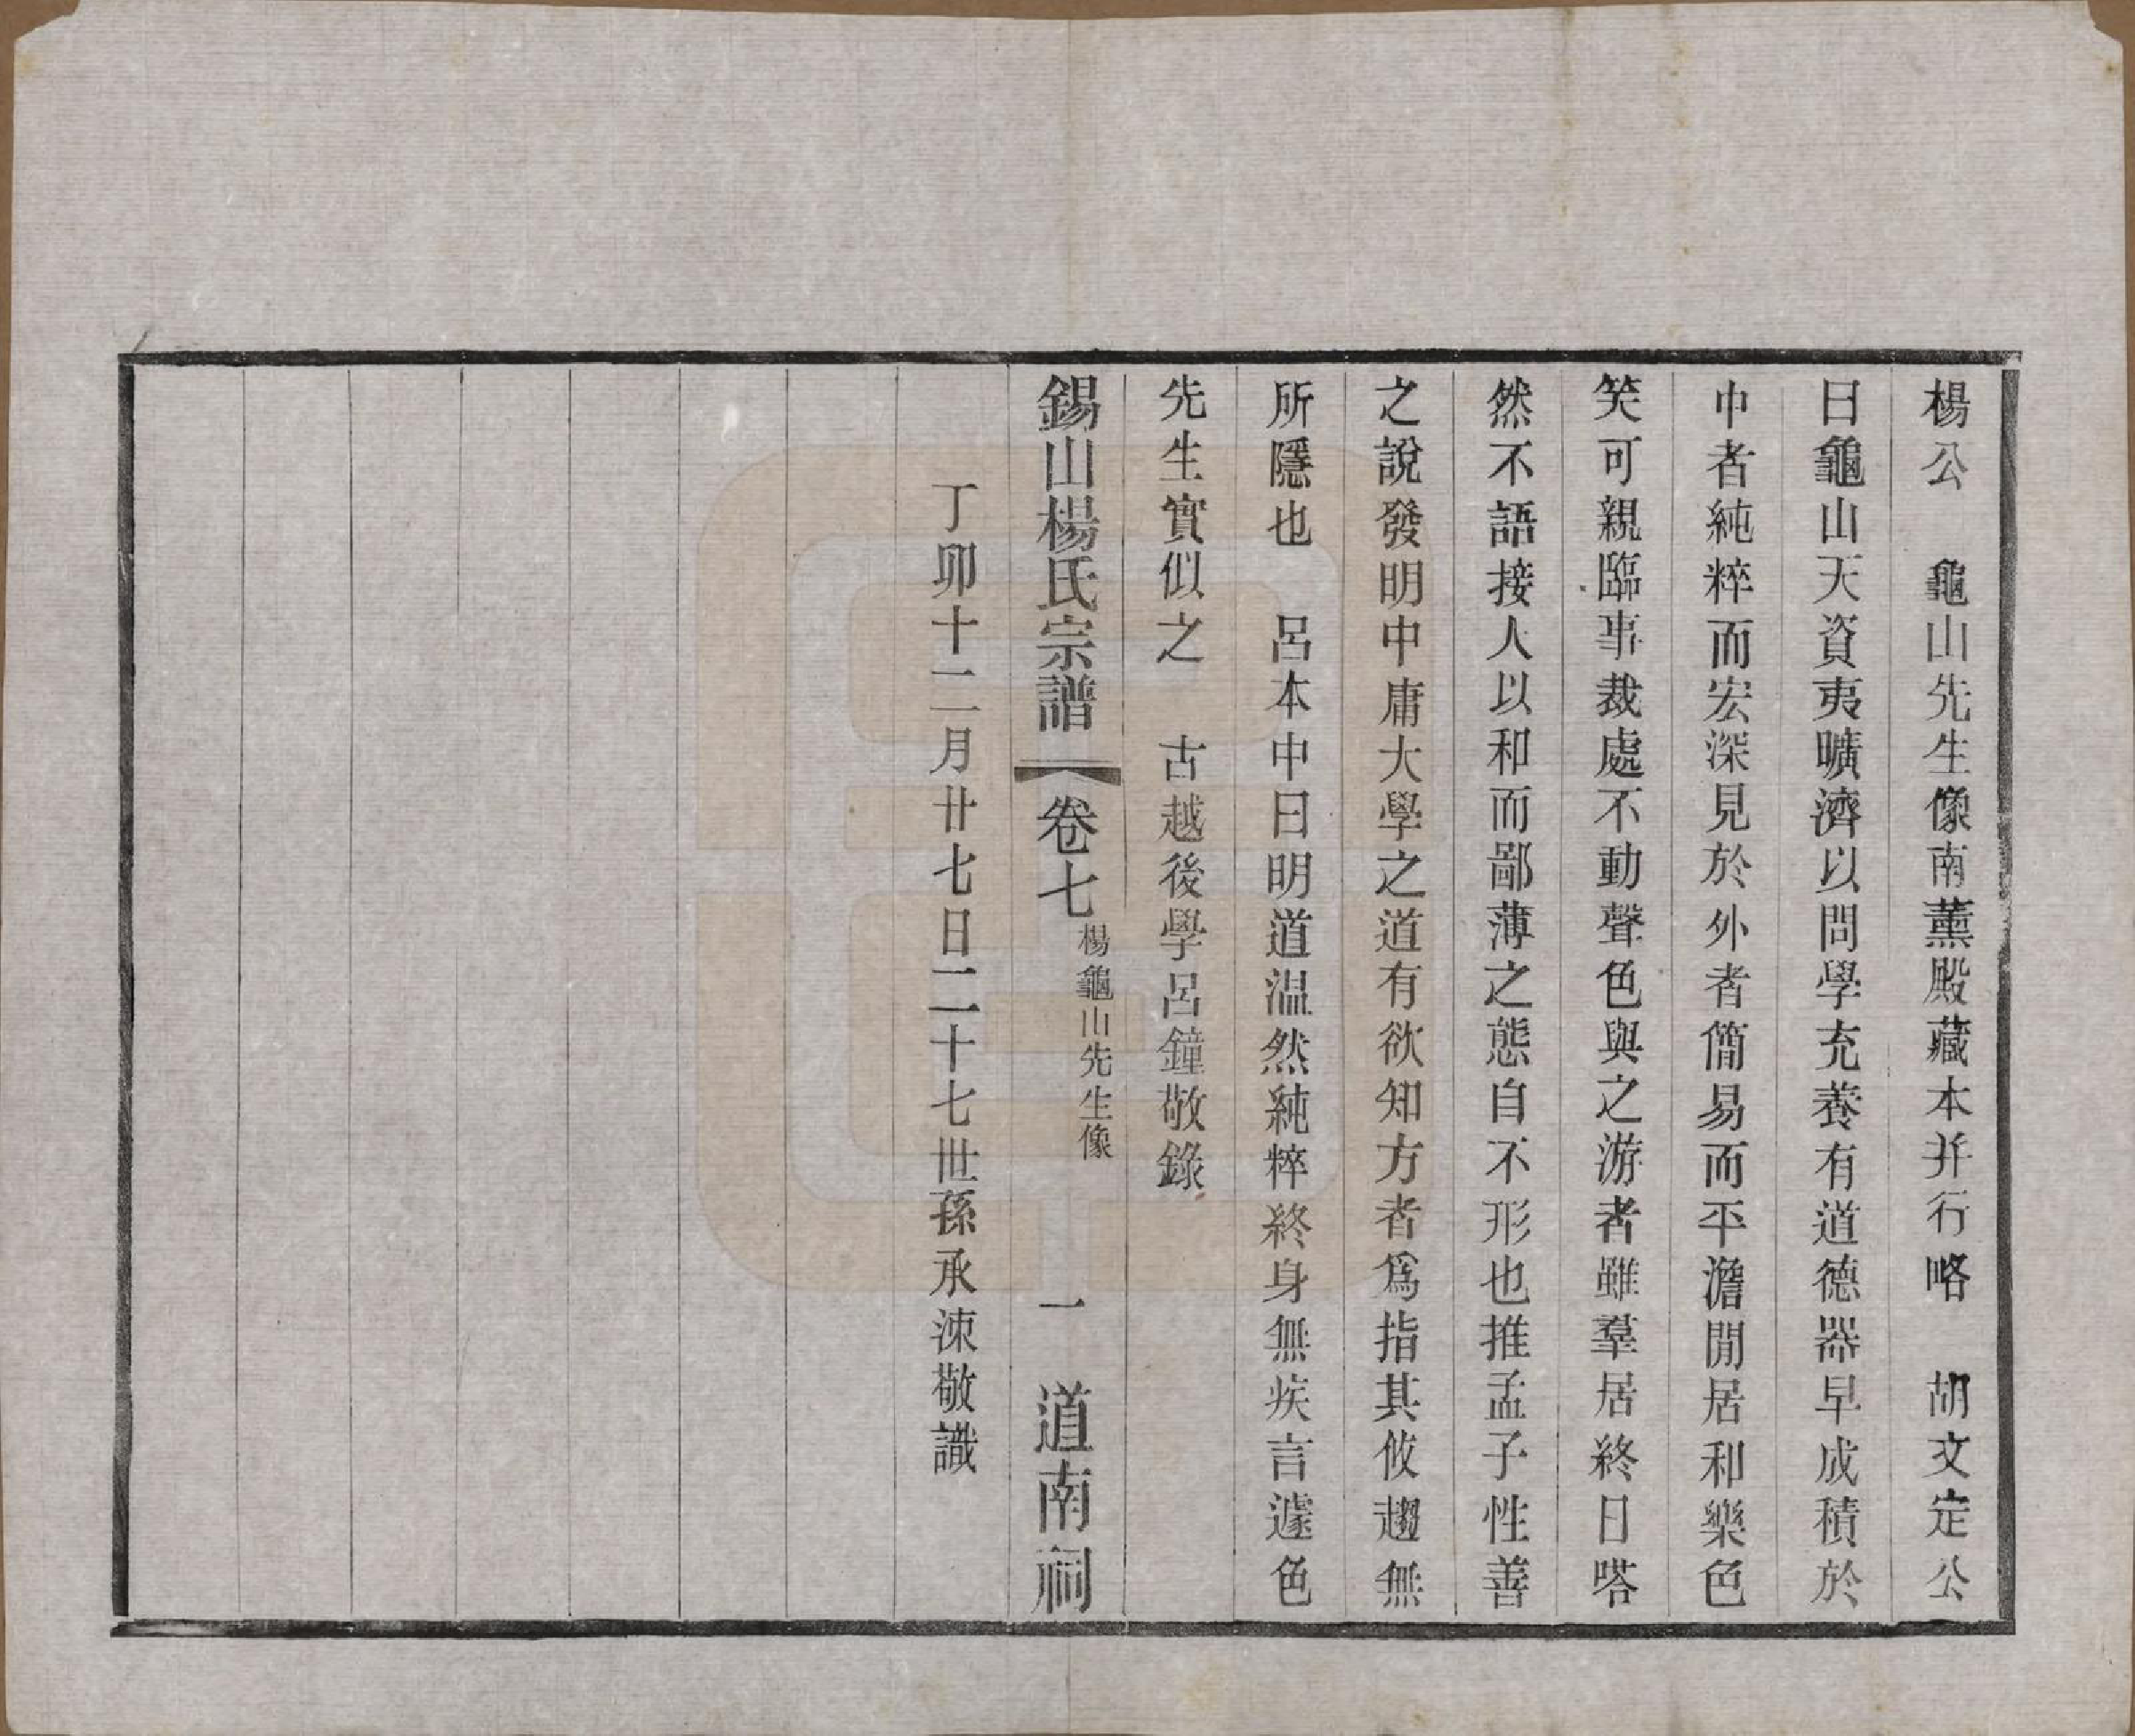 楊公　龜山先生像南薰殿藏本并行略　胡文定公
曰龜山天資夷曠濟以問學充養有道德器早成積於
中者純粹而宏深見於外者簡易而平澹閒居和樂色
笑可親臨事裁處不動聲色與之游者雖羣居終日嗒
然不語接人以和而鄙薄之態自不形也推孟子性善
之說發明中庸大學之道有欲知方者爲指其攸趨無
所隱也　呂本中曰明道温然純粹終身無疾言遽色
先生實似之　古越後學呂鐘敬錄
錫山楊氏宗譜　卷七　楊龜山先生像　一　道南祠
丁卯十二月廿七日二十七世孫承涑敬識